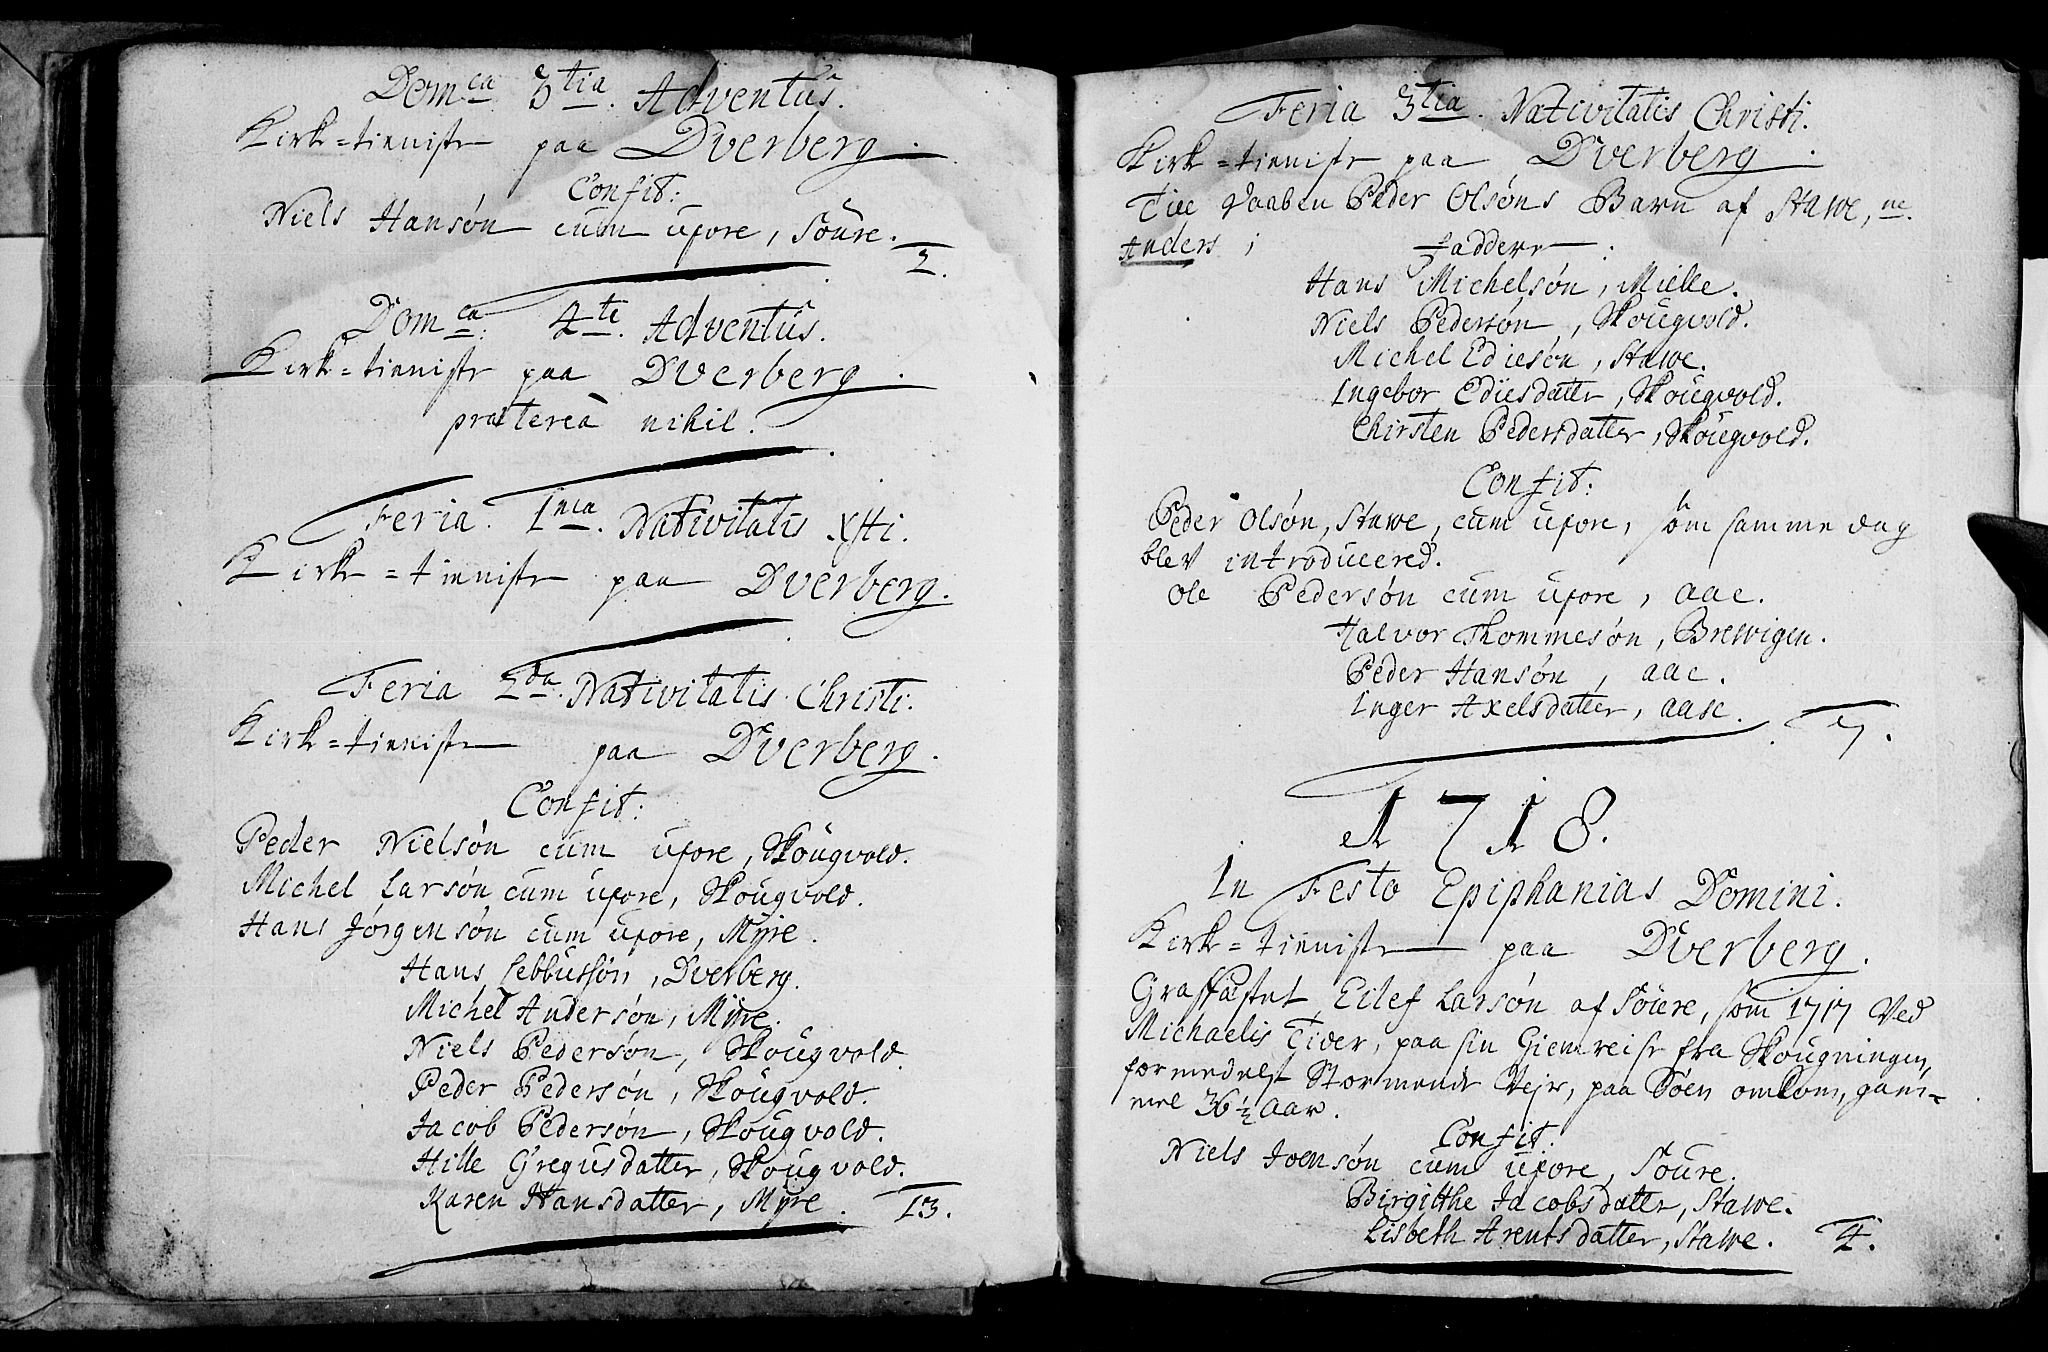 Domca 3tia. Adventus.
Kirk=tieniste paa Dverberg.
Confit:
Niels Hansøn cum uxore, Söure.
2.
Domca. 4te. Adventus.
Kirk=tieniste paa Dverberg.
præterea nihil.
Feria 1ma. Nativitatis Xsti.
Kirk=tieniste paa Dverberg.
Feria 2da. Nativitatis Christi.
Kirk=tieniste paa Dverberg.
Confit:
Peder Nielsøn cum uxore, Skougvold.
Michel Larsøn cum uxore, Skougvold.
Hans Jørgensøn cum uxore, Myre.
Hans Sebbussøn, Dverberg.
Michel Andersøn, Myre.
Niels Pedersøn, Skougvold.
Peder Pedersøn, Skougvold.
Jacob Pedersøn, Skougvold.
Hille Gregusdatter, Skougvold.
Karen Hansdatter, Myre. 13.
Feria 3tia. Nativitatis Christi.
Kirk=tieniste paa Dverberg.
Peder Olsøns Barn af Stawe, ne.
Anders; Faddere.
Hans Michelsøn, Mielle.
Niels Pedersøn, Skougvold.
Michel Ediesøn, Stawe.
Ingebor Ediesdatter, Skougvold.
Chirsten Pedersdatter, Skougvold.
Confit:
Peder Olsøn, Stawe, cum uxore, som samme dag
blev introducered.
Ole Pedersøn cum uxore, Aae.
Halvor Thommesøn, Brewigen.
Peder Hansøn, Aae.
Inger Axelsdatter, Aase.
7.
1718.
In Festo Epiphanias Domini.
Kirk=tieniste paa Dverberg.
Graffæstet Eilef Larsøn af Söure, som 1717 Ved
Michaelis Tider, paa sin Giemreise fra Skougningen,
formedelst Stormende Vejr, paa Søen omkom, gam-
mel 36 1/2 Aar.
Confit:
Niels Joensøn cum uxore, Söure.
Birgitthe Jacobsdatter, Stawe.
Lisbeth Arentsdatter, Stawe. 4.